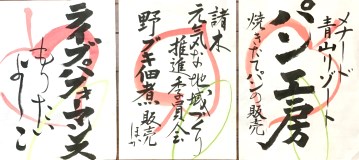 メナード
青山リゾート
パン工房
焼きたてパンの販売
諸木
元気な地域づくり
推進委員会
野ブキ佃煮販売
ほか
ライブパフォーマンス
よしこ